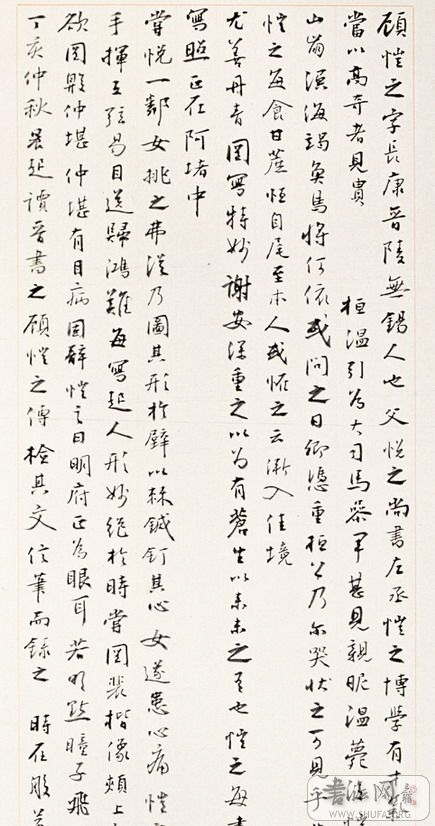 顧愷之字長康晉陵無錫人也父悅之尚書左丞愷之博學有才氣
當以高奇者見貴　桓溫引為大司馬參軍甚見親昵溫薨後愷
山崩溟海竭魚鳥將何依或問之曰卿憑重桓公乃爾哭狀之可見乎
愷之每食甘蔗恒自尾至本人或怪之云漸入佳境
尤善丹青圖寫特妙謝安深重之以為有蒼生以來未之有也愷之每畫
寫照正在阿堵中
嘗悅一鄰女挑之弗從乃圖其形於壁以棘鍼釘其心女遂患心痛愷之
手揮五弦易目送歸鴻難每寫起人形妙絕於時嘗圖裴楷像頰上
欲圖殷仲堪仲堪有目病固辭愷之曰明府正為眼耳若明點瞳子飛
丁亥仲秋晨起讀晉書之顧愷之傳檢其文信筆而錄之　時在
書法网
WWW.SHUFA.ORG